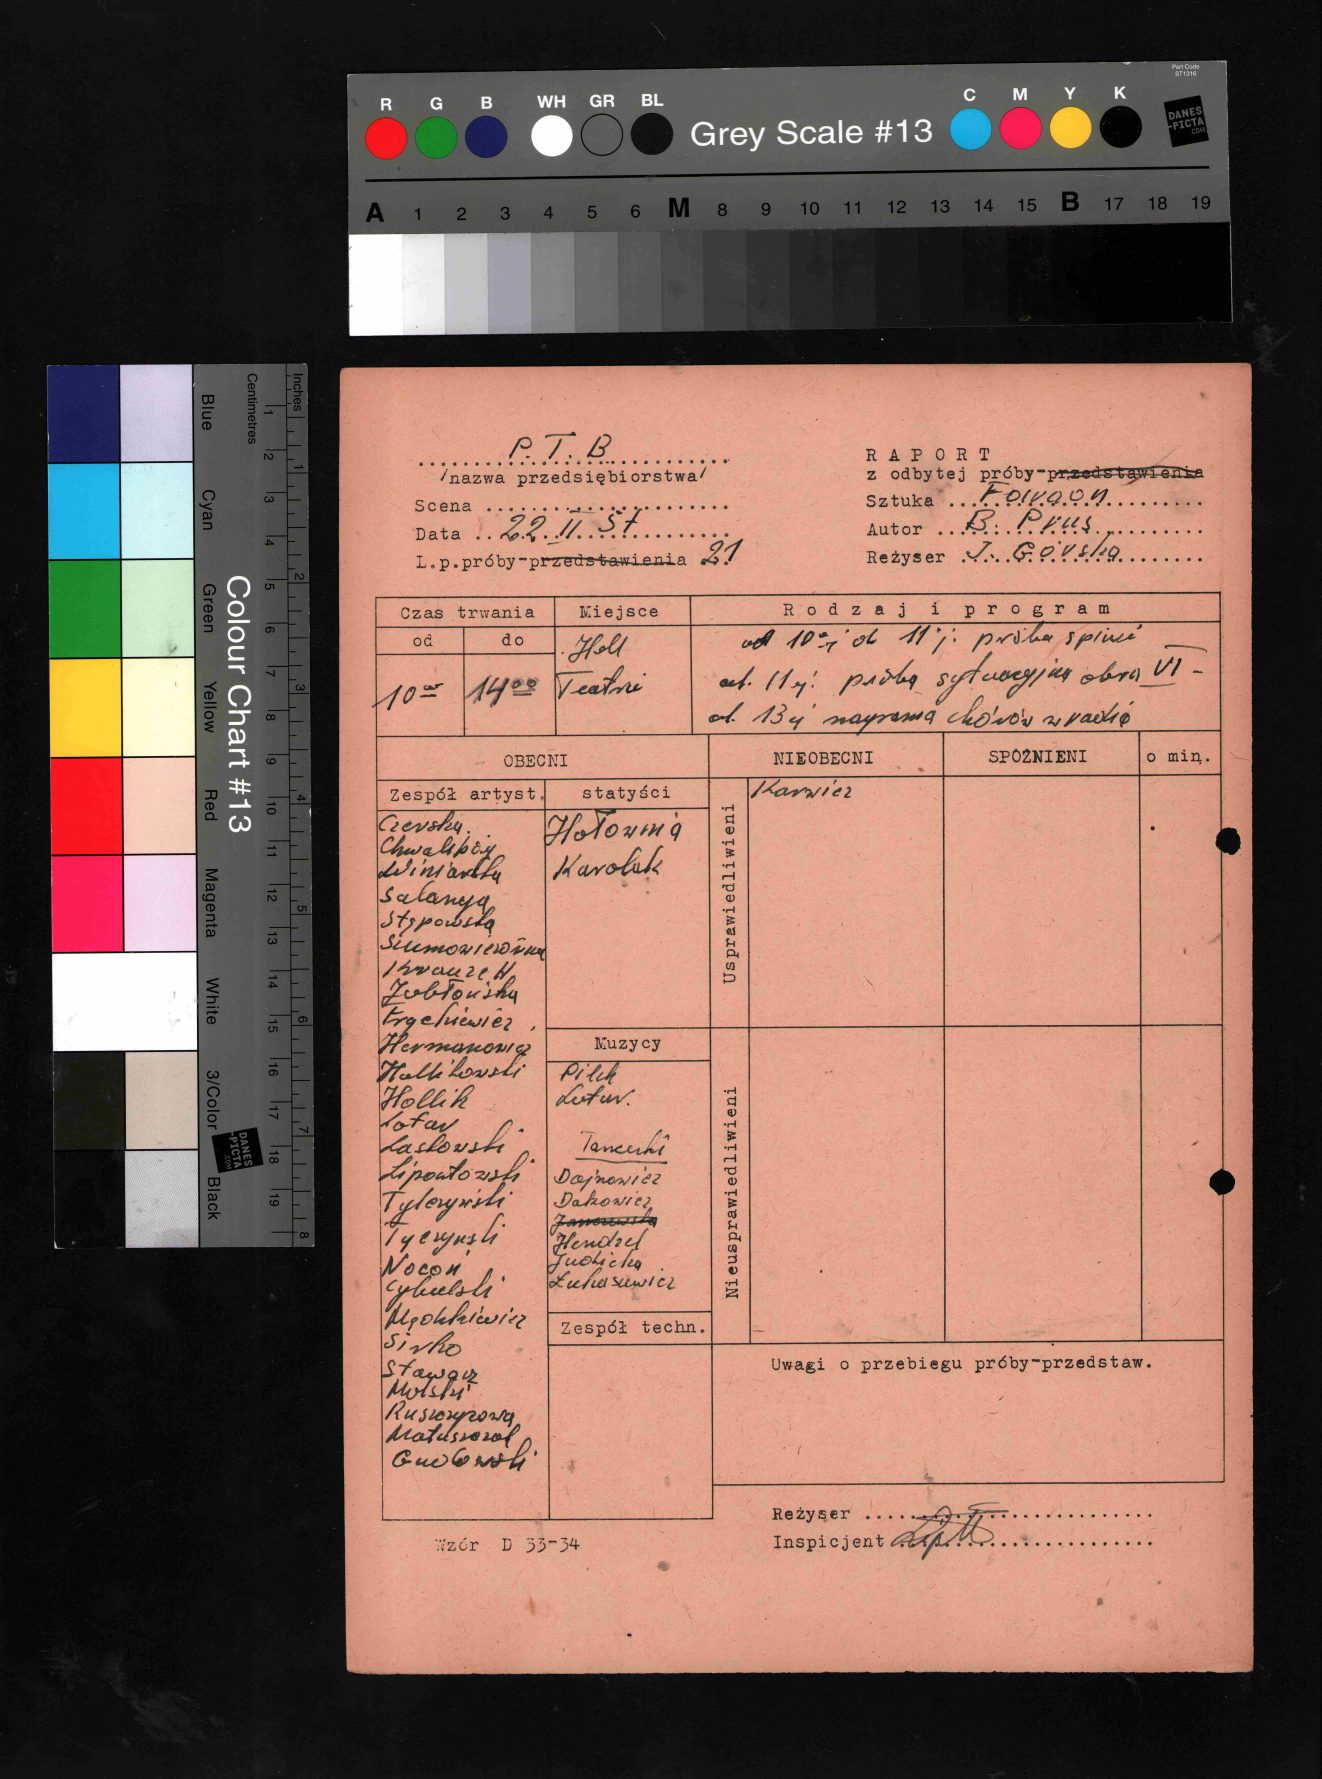 Part Code
ST1316
R G B WH GR BL Grey Scale #13 C M Y K
DANES
-PICTA
.COM
A 1 2 3 4 5 6 M 8 9 10 11 12 13 14 15 B 17 18 19
Inches
Centimetres
Colour Chart #13
Blue
Cyan
Green
Yellow
Red
Magenta
White
3/Color
Black
1 2 3 4 5 6 7 8 9 10 11 12 13 14 15 16 17 18 19
1 2 3 4 5 6 7 8
DANES
-PICTA
.COM
P. T. B
/nazwa przedsiębiorstwa/
Scena
Data 22 II 57
L.p.próby-przedstawienia 21
RAPORT
z odbytej próby-przedstawienia
Sztuka Faraon
Autor B. Prus
Reżyser I. Górska
Czas trwania
Miejsce
Rodzaj i program
od
do
10
14 00
Hall
Teatru
od 10 ej do 11 ej próba
od 11 ej próba sytuacyjna VI
od 13 ej nagrania chórów w radio
OBECNI
NIEOBECNI
SPÓŹNIENI
o min.
Zespół artyst.
statyści
Usprawiedliwieni
Karwicz
Czerska
Winiarska
Stępowska
Krauze H
Jabłońska
Hermanowicz
Hollik
Lotar
Laskowski
Tyczyński
Nocoń
Cybulski
Sirko
Stawarz
Molski
Matuszczak
Hołownia
Karolak
Muzycy
Pilch
Lotar.
Tancerki
Dajnowicz
Dakowicz
Hendzel
Judicka
Łukasiewicz
Zespół techn.
Nieusprawiedliwieni
Uwagi o przebiegu próby-przedstaw.
Reżyser
Inspicjent
Wzór D 33-34